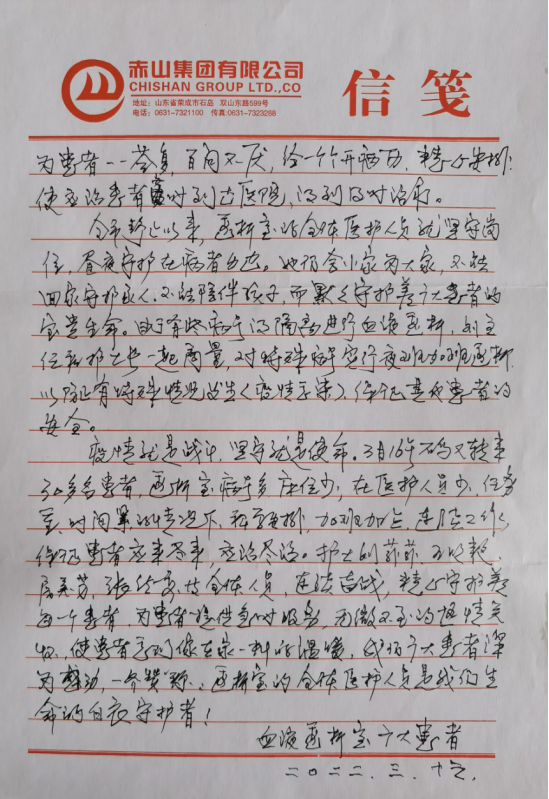 赤山集团有限公司
CHISHAN GROUP LTD.,CO
地址：山东省荣成市石岛 双山东路599号
电话：0631-7321100 传真:0631-7323288
信笺
为患者一一答复，百问不厌，给一个个开药方，精心安排，
使应治患者及时到达医院，得到及时治疗。
全市静止以来，透析室的全体医护人员就坚守岗
位，昼夜守护在病者身边。她们舍小家为大家，不能
回家守护亲人，不能陪伴孩子，而默默守护着广大患者的
宝贵生命。由于有些病号得隔离进行血液透析，刘主
任和护士长一起商量，对特殊病号实行夜班加班透析，
以防止有特殊情况发生（疫情无情），保证其他患者的
安全。
疫情就是战斗，坚守就是使命。3月16号石岛又转来
30多名患者，透析室病号多床位少，在医护人员少，任务
重，时间紧的情况下，科学安排，加班加点，连续工作，
保证患者应来尽来，应治尽治。护士刘菲菲，王
全体人员，连续奋战，精心守护着
每一个患者，为患者提供及时服务，无微不至的热情关
怀，使患者感到像在家一样的温暖，我们广大患者深
为感动，一个赞称：透析室的全体医护人员是我们生
命的白衣守护者！
血液透析室广大患者
二〇二二.三.十六.